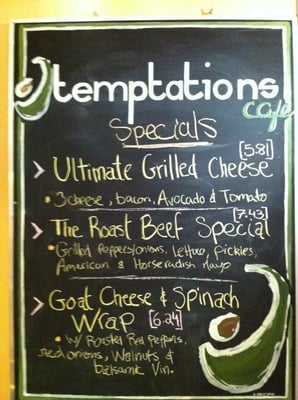 temptations
café
Specials
[5.81]
Ultimate Grilled Cheese
• 3 cheese, bacon, Avocado & Tomato
[7.43]
The Roast Beef Special
• Grilled Peppers/onions, lettuce, pickles,
American & Horseradish Mayo
Goat Cheese & Spinach
Wrap [6.24]
• w/ Roasted Red Peppers,
red onions, Walnuts &
balsamic Vin.